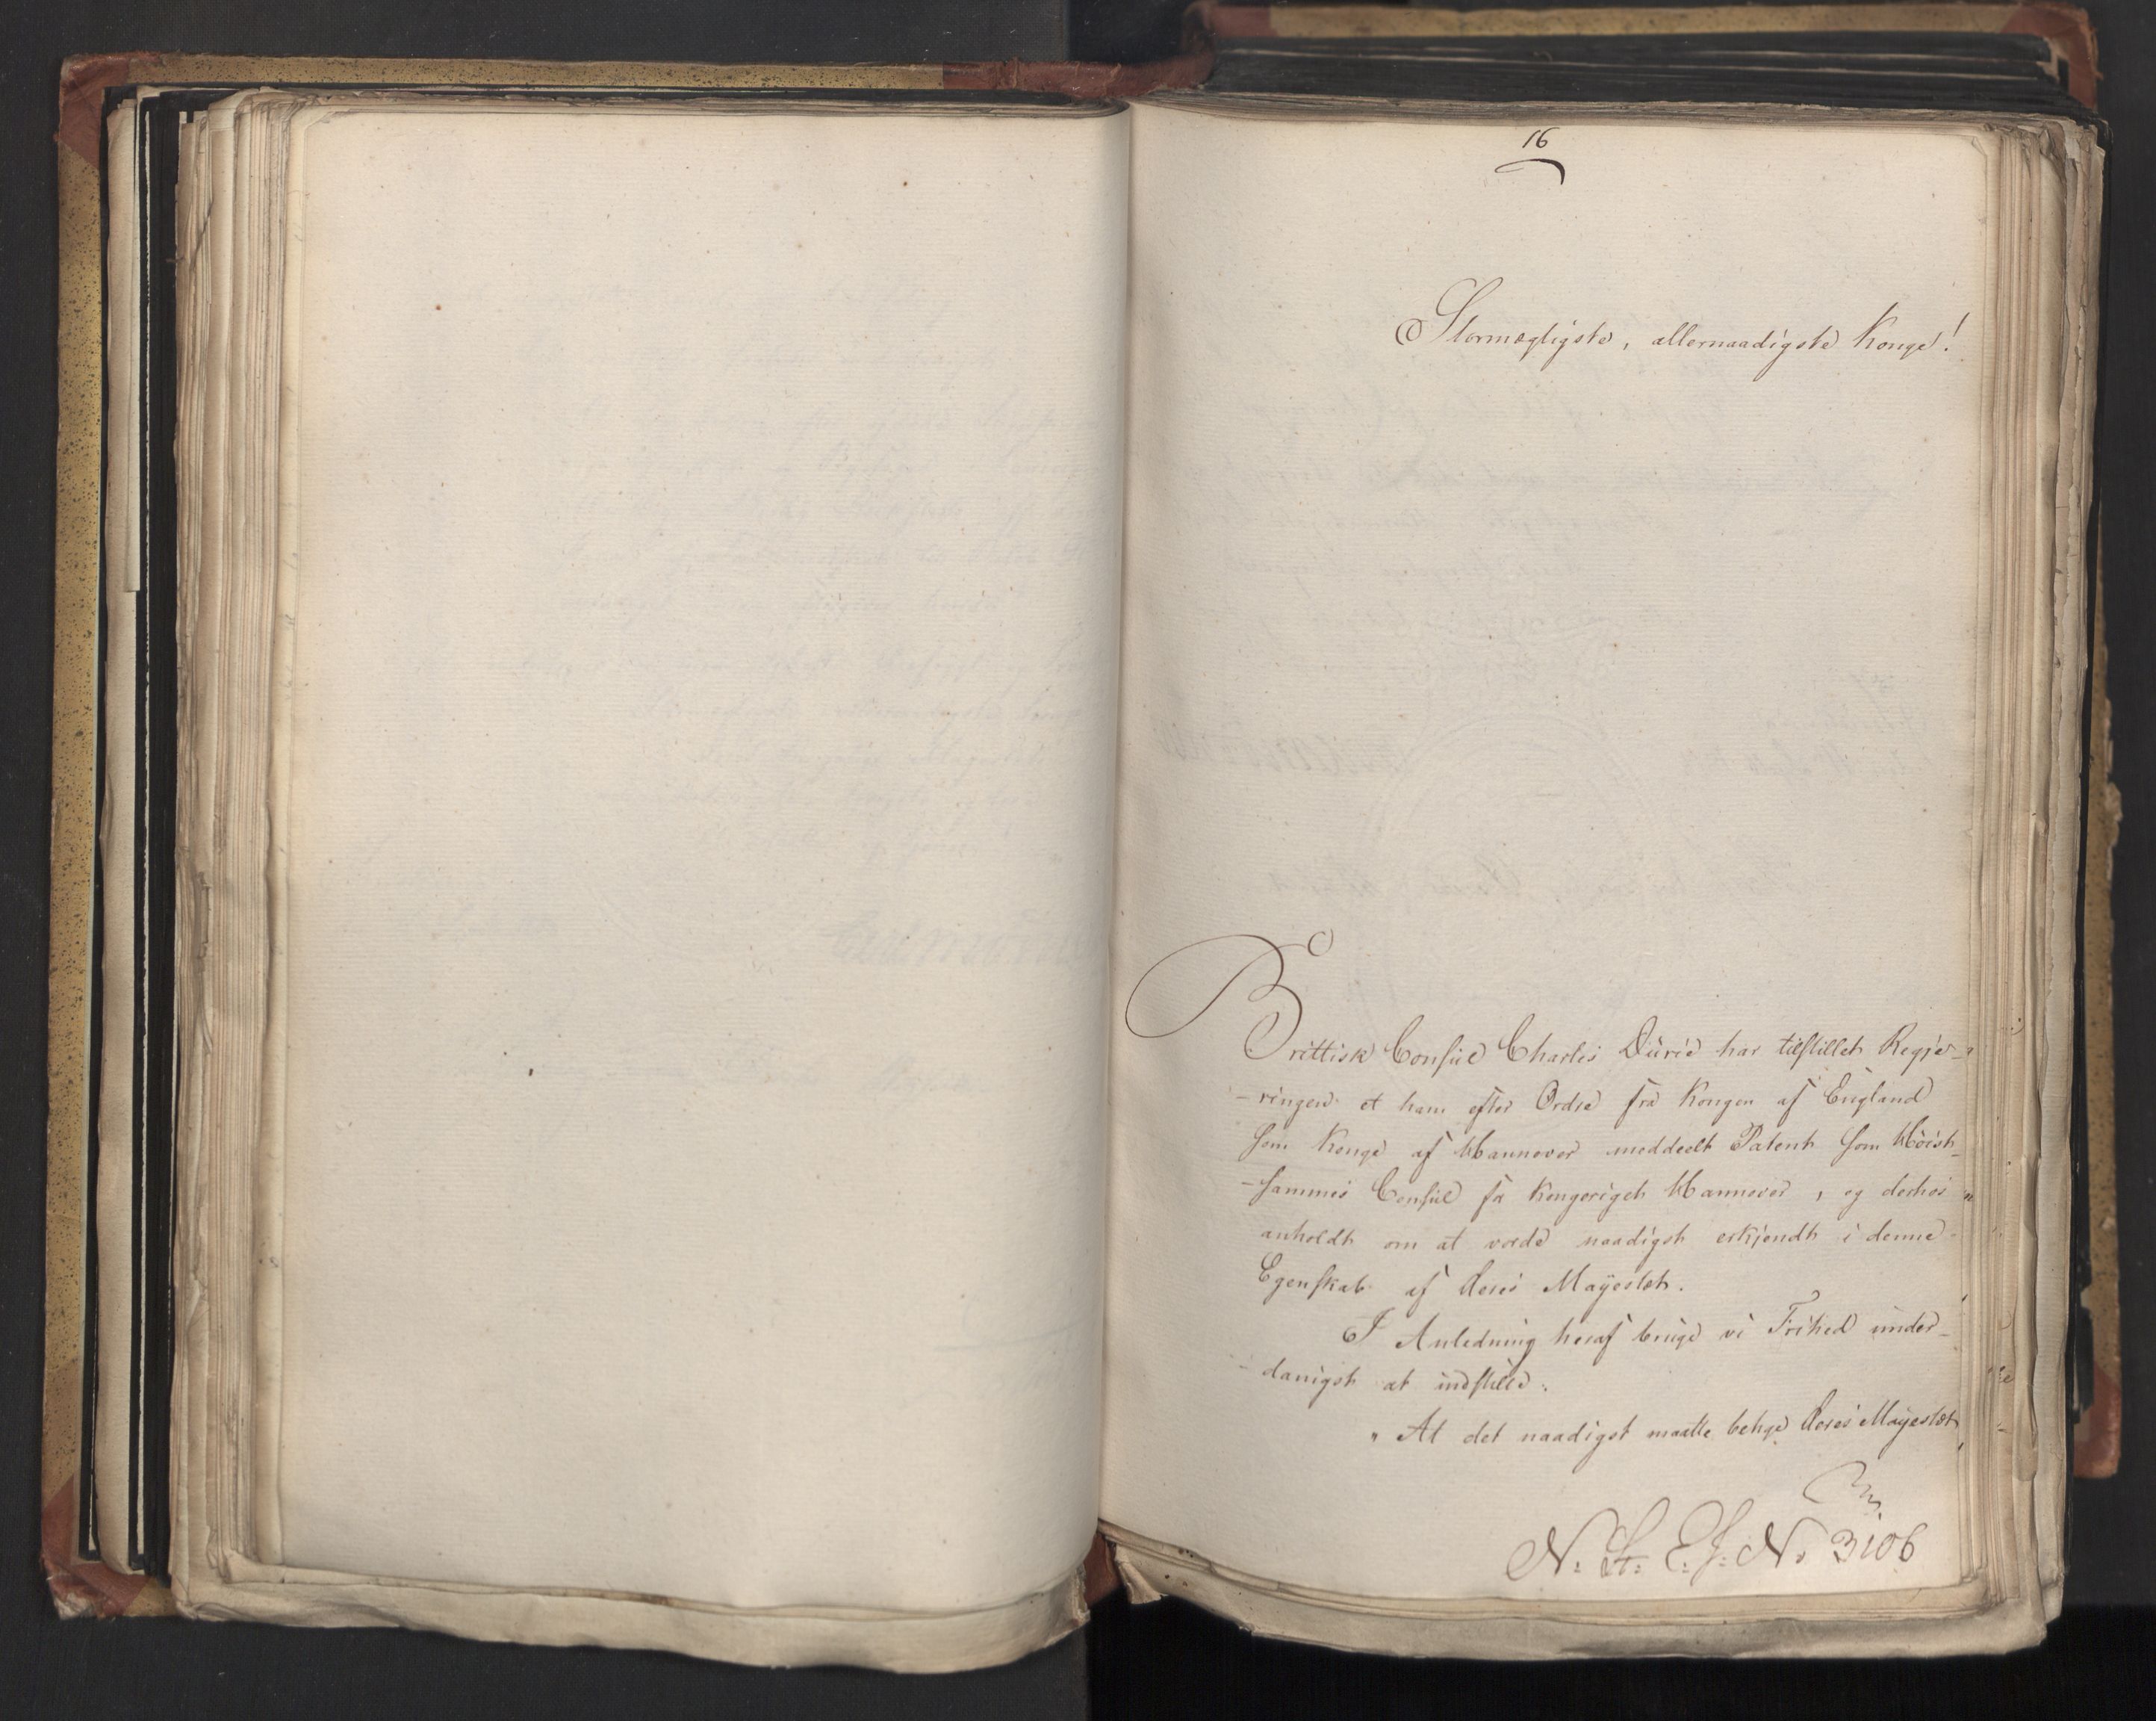 16
Stormægtigste, allernaadigste Konge!
Brittisk Consul Charles Durie har tilstillet Regje-
-ringen et ham efter Ordre fra Kongen af England
som Konge af Hannover meddeelt Patent som Høist-
-sammes Consul fra Kongeriget Hannover, og derhos
anholdt om at vorde naadigst erkjendt i denne
Egenskab af Deres Majestæt.
I Anledning heraf bruge vi Frihed under-
danigst at indstille:
"At det naadigst maatte behge Deres Majestæt
N: St: E: J: No 3106